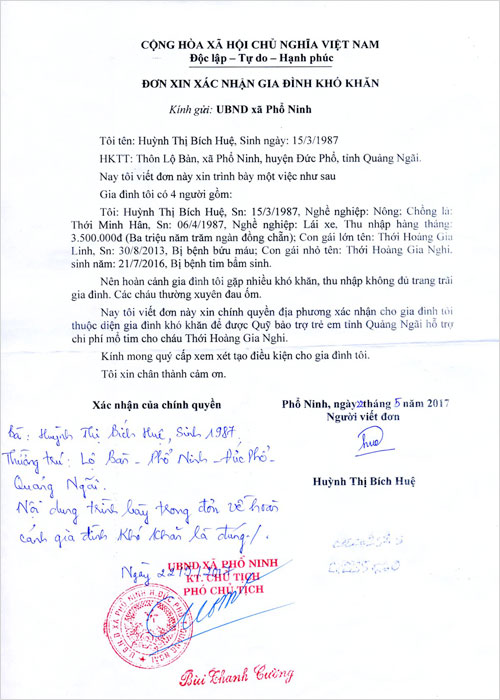 CỘNG HÒA XÃ HỘI CHỦ NGHĨA VIỆT NAM
Độc lập – Tự do – Hạnh phúc
ĐƠN XIN XÁC NHẬN GIA ĐÌNH KHÓ KHĂN
Kính gửi: UBND xã Phổ Ninh
Tôi tên: Huỳnh Thị Bích Huệ, Sinh ngày: 15/3/1987
HKTT: Thôn Lộ Bàn, xã Phổ Ninh, huyện Đức Phổ, tỉnh Quảng Ngãi.
Nay tôi viết đơn này xin trình bày một việc như sau
Gia đình tôi có 4 người gồm:
Tôi: Huỳnh Thị Bích Huệ, Sn: 15/3/1987, Nghề nghiệp: Nông; Chồng là:
Thới Minh Hân, Sn: 06/4/1987, Nghề nghiệp: Lái xe, Thu nhập hàng tháng:
3.500.000đ (Ba triệu năm trăm ngàn đồng chẵn); Con gái lớn tên: Thới Hoàng Gia
Linh, Sn: 30/8/2013, Bị bệnh bứu máu; Con gái nhỏ tên: Thới Hoàng Gia Nghi,
sinh năm: 21/7/2016, Bị bệnh tim bẩm sinh.
Nên hoàn cảnh gia đình tôi gặp nhiều khó khăn, thu nhập không đủ trang trãi
gia đình. Các cháu thường xuyên đau ốm.
Nay tôi viết đơn này xin chính quyền địa phương xác nhận cho gia đình tôi
thuộc diện gia đình khó khăn để được Quỹ bảo trợ trẻ em tỉnh Quảng Ngãi hỗ trợ
chi phí mổ tim cho cháu Thới Hoàng Gia Nghi.
Kính mong quý cấp xem xét tạo điều kiện cho gia đình tôi.
Tôi xin chân thành cảm ơn.
Xác nhận của chính quyền
Phổ Ninh, ngày 22 tháng 5 năm 2017
Người viết đơn
Huỳnh Thị Bích Huệ
Bà: Huỳnh Thị Bích Huệ, Sinh 1987,
Thường trú: Lộ Bàn - Phổ Ninh - Đức Phổ -
Quảng Ngãi.
Nội dung trình bày trong đơn về hoàn
cảnh gia đình khó khăn là đúng./.
Ngày 22
UBND XÃ PHỔ NINH
KT. CHỦ TỊCH
PHÓ CHỦ TỊCH
Bùi Thanh Cường